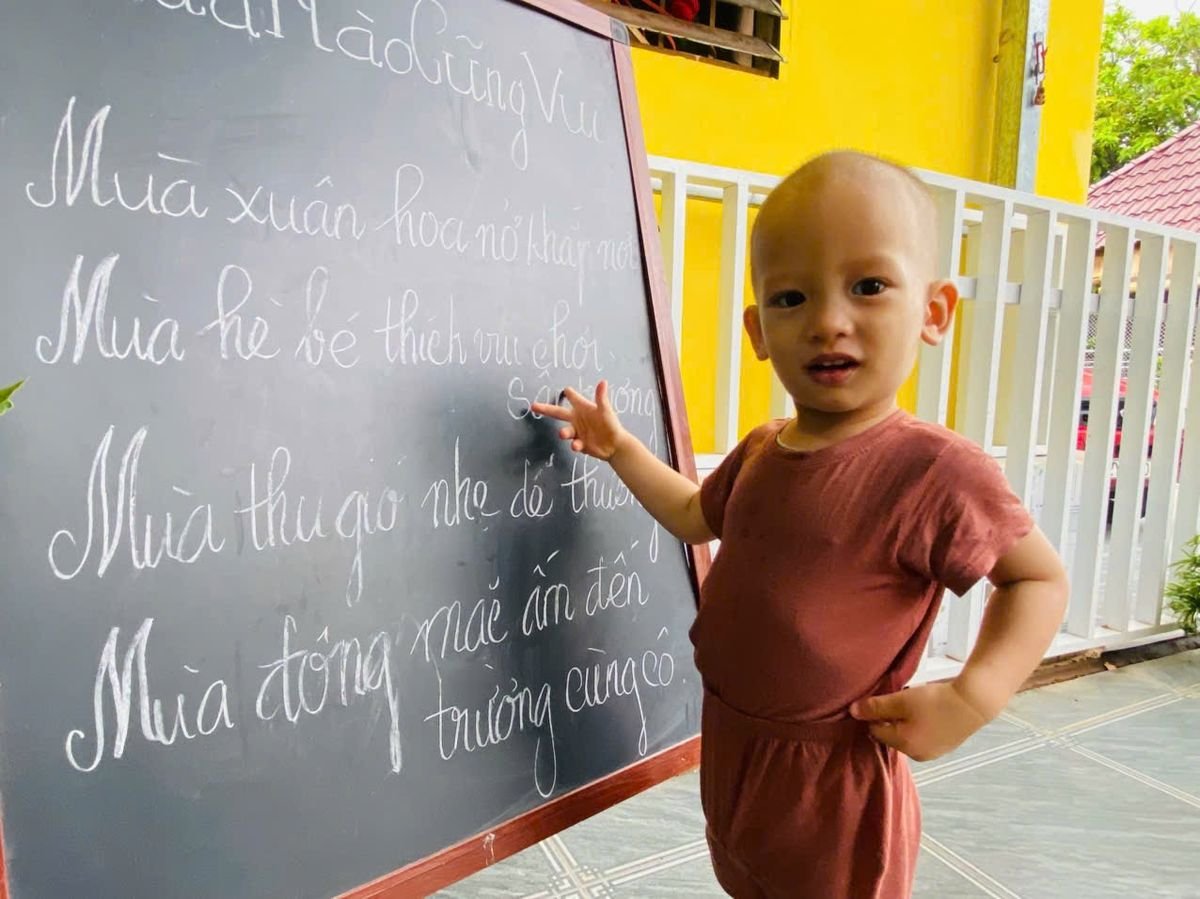 Nào Cũng Vui
Mùa xuân hoa nở khắp nơi
Mùa hè bé thích vui chơi
Mùa thu gió nhẹ dễ thương
Mùa đông mặc ấm đến
trường cùng cô.